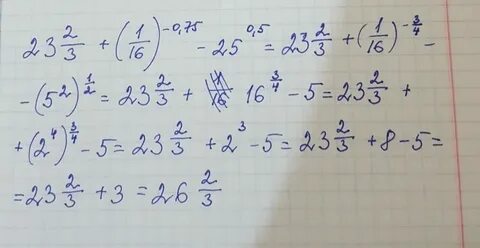 23 2/3 + (1/16)^-0,75 - 25^0,5 = 23 2/3 + (1/16)^-3/4 -
- (5^2)^1/2 = 23 2/3 + 16^3/4 - 5 = 23 2/3 +
+ (2^4)^3/4 - 5 = 23 2/3 + 2^3 - 5 = 23 2/3 + 8 - 5 =
= 23 2/3 + 3 = 26 2/3